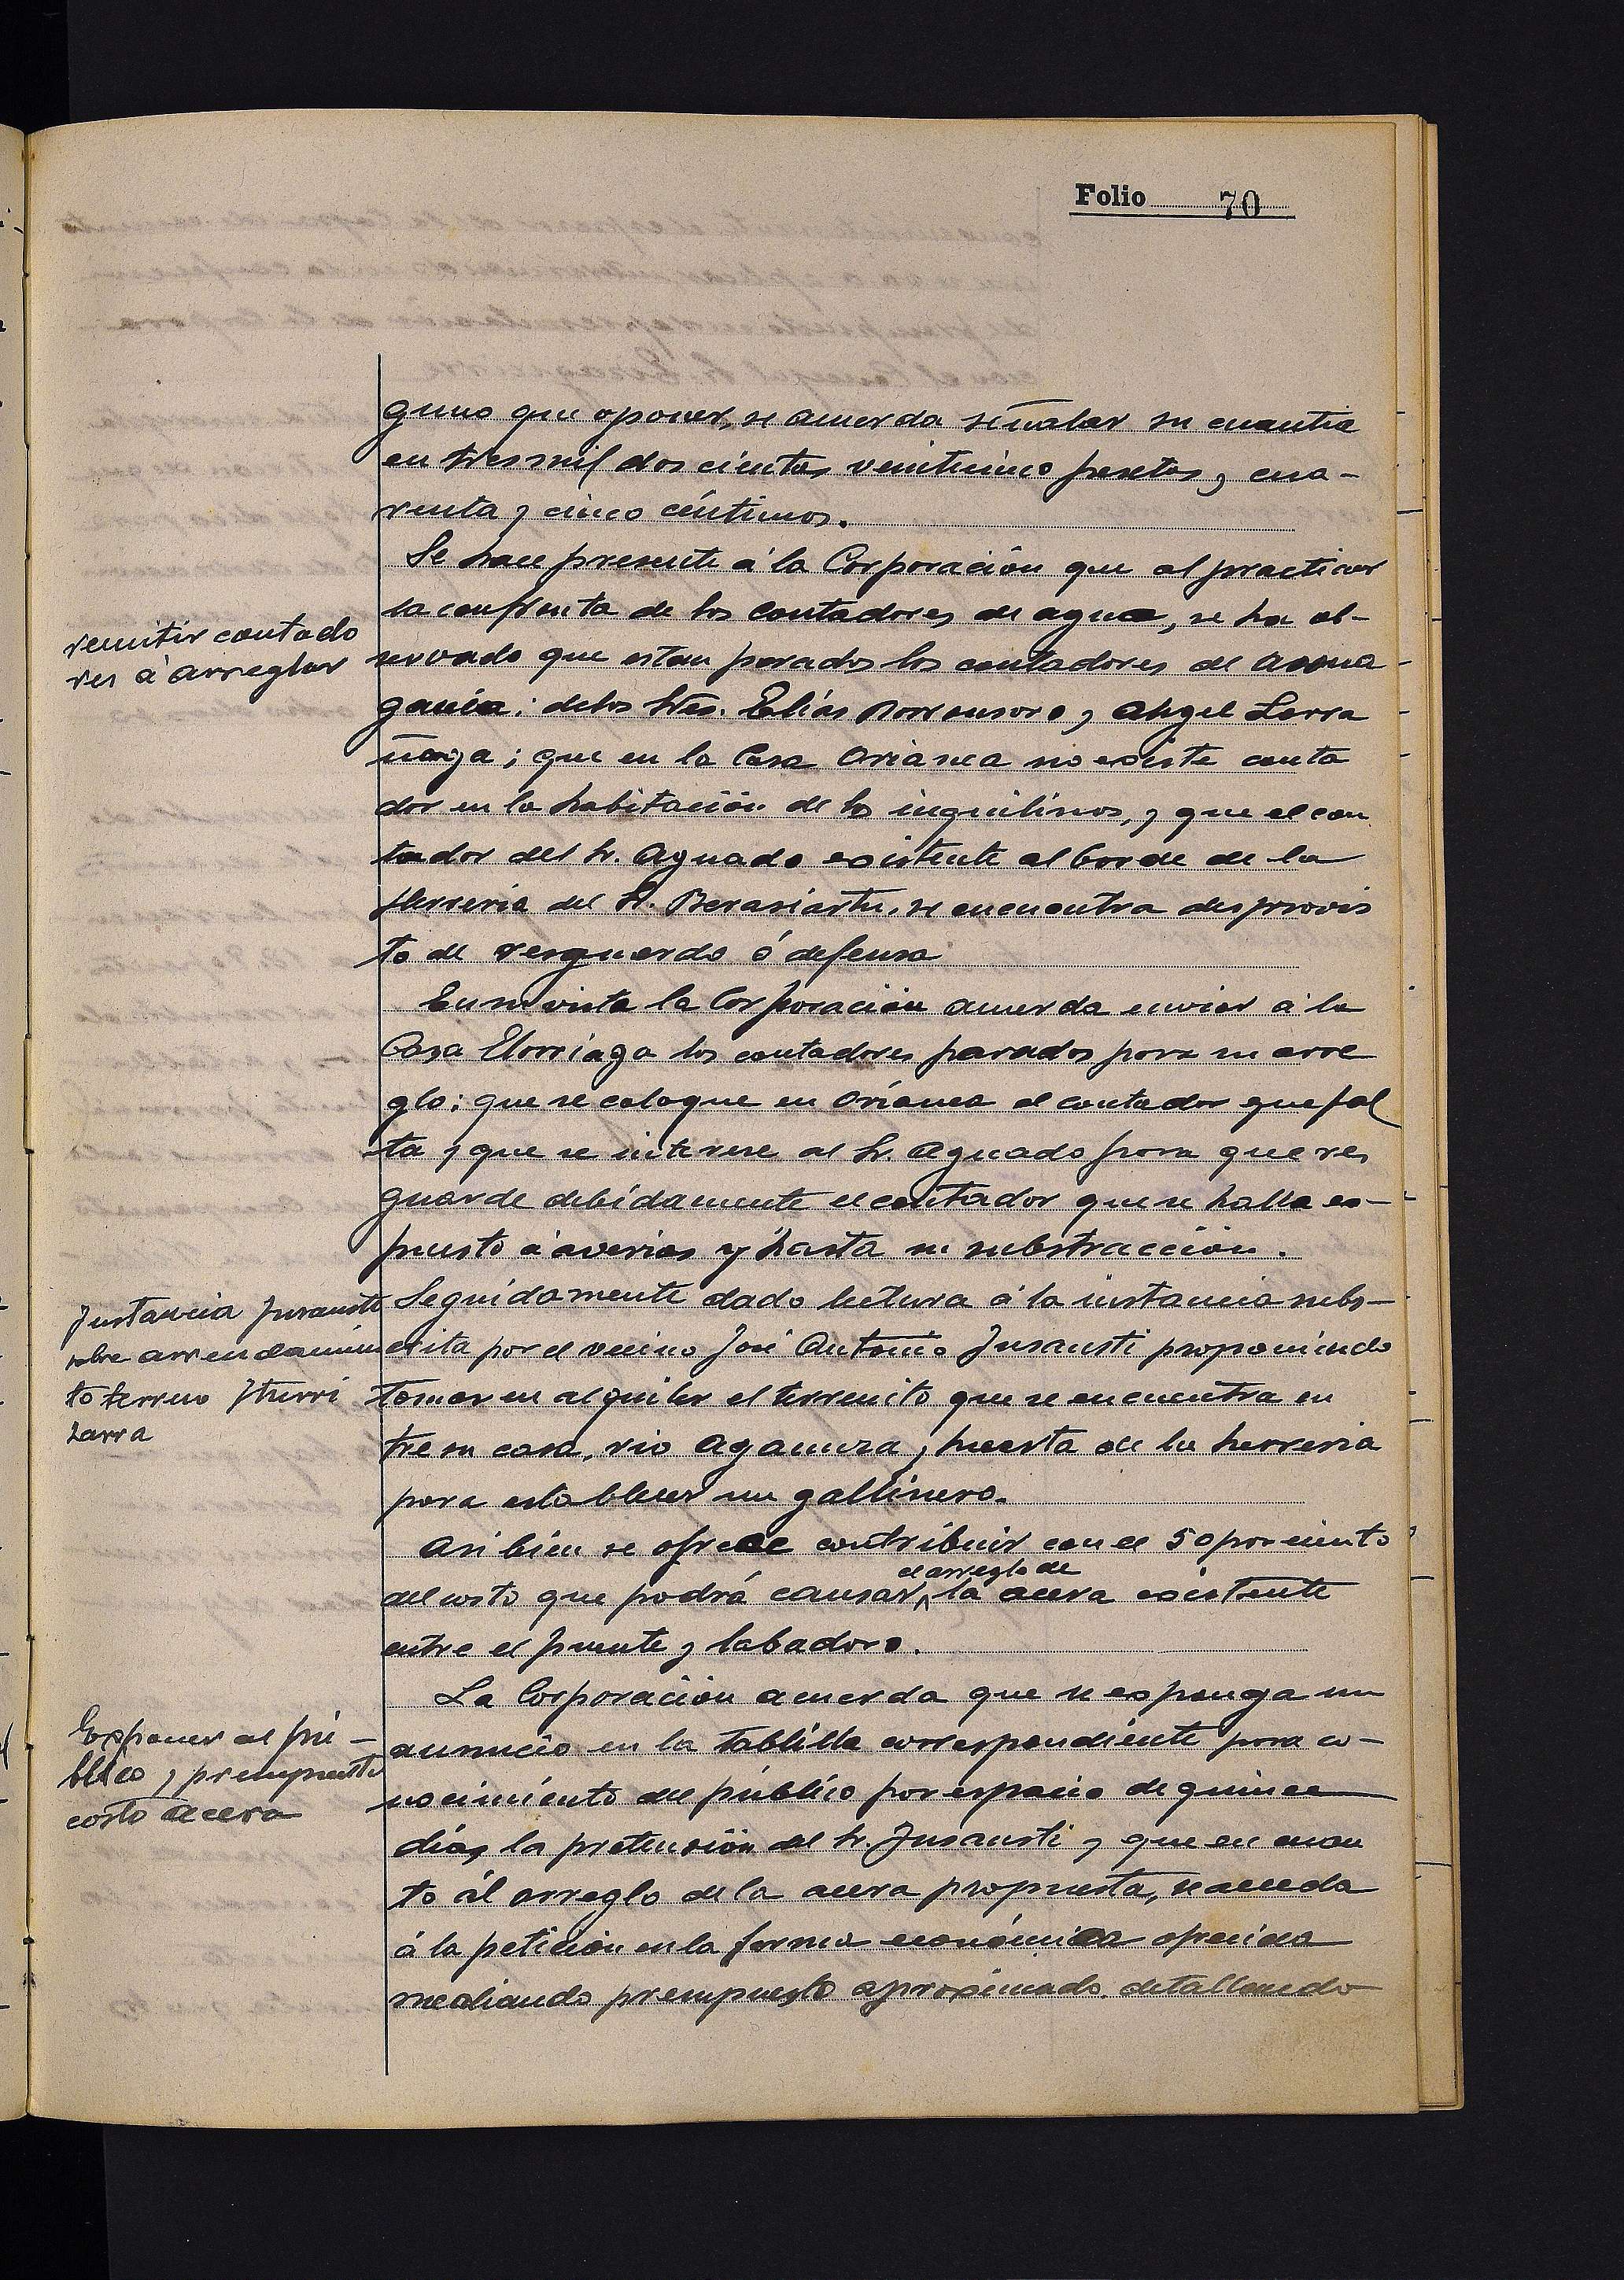 Folio 70
guno que oponer, se acuerda señalar su cuantia
en tres mil dos cientas veinticinco pesetas y cua-
renta y cinco céntimos.
Se hace presente á la Corporación que al practicar
la confronta de los contadores de agua, se ha ob-
remitir contado
servado que estan parados los contadores de
res á arreglar
de los Sres. Elias y Angel Larra
ñaga; que en la Casa Orianea no existe conta
dor en la habitación de los inquilinos, y que el con
tador del Sr. Aguado existente al borde de la
Herreria del Sr. Berasiartu, se encuentra desprovis
to de resguardo ó defensa
En su vista la Corporación acuerda enviar á la
Casa Elorriaga los contadores parados para su arre
glo: que se coloque en Orianea el contador que fal
ta y que se interese al Sr. Aguado para que res
guarde debidamente el contador que se halla ex-
puesto á averias y hasta su substracción.
Instancia Jusausti
Seguidamente dado lectura á la instancia subs-
sobre arrendamien
crita por el vecino José Antonio Jusausti proponiendo
to terreno Iturri
tomar en alquiler el terrenito que se encuentra en
zarra
tre su casa, rio Agaunza y puerta de la herreria
para establecer un gallinero.
Asi bien se ofrece contribuir con el 50 por ciento
del costo que podrá causar el arreglo de la acera existente
entre el puente y labadero.
La Corporación acuerda que se exponga un
Exponer al pú-
anuncio en la tablilla correspondiente para co-
blico y presupuesto
nocimiento del público por espacio de quince
costo acera
dias la pretensión del Sr. Jusausti y que en cuan
to ál arreglo de la acera propuesta, se acceda
á la petición en la forma económica ofrecida
mediando presupuesto aproximado detallando